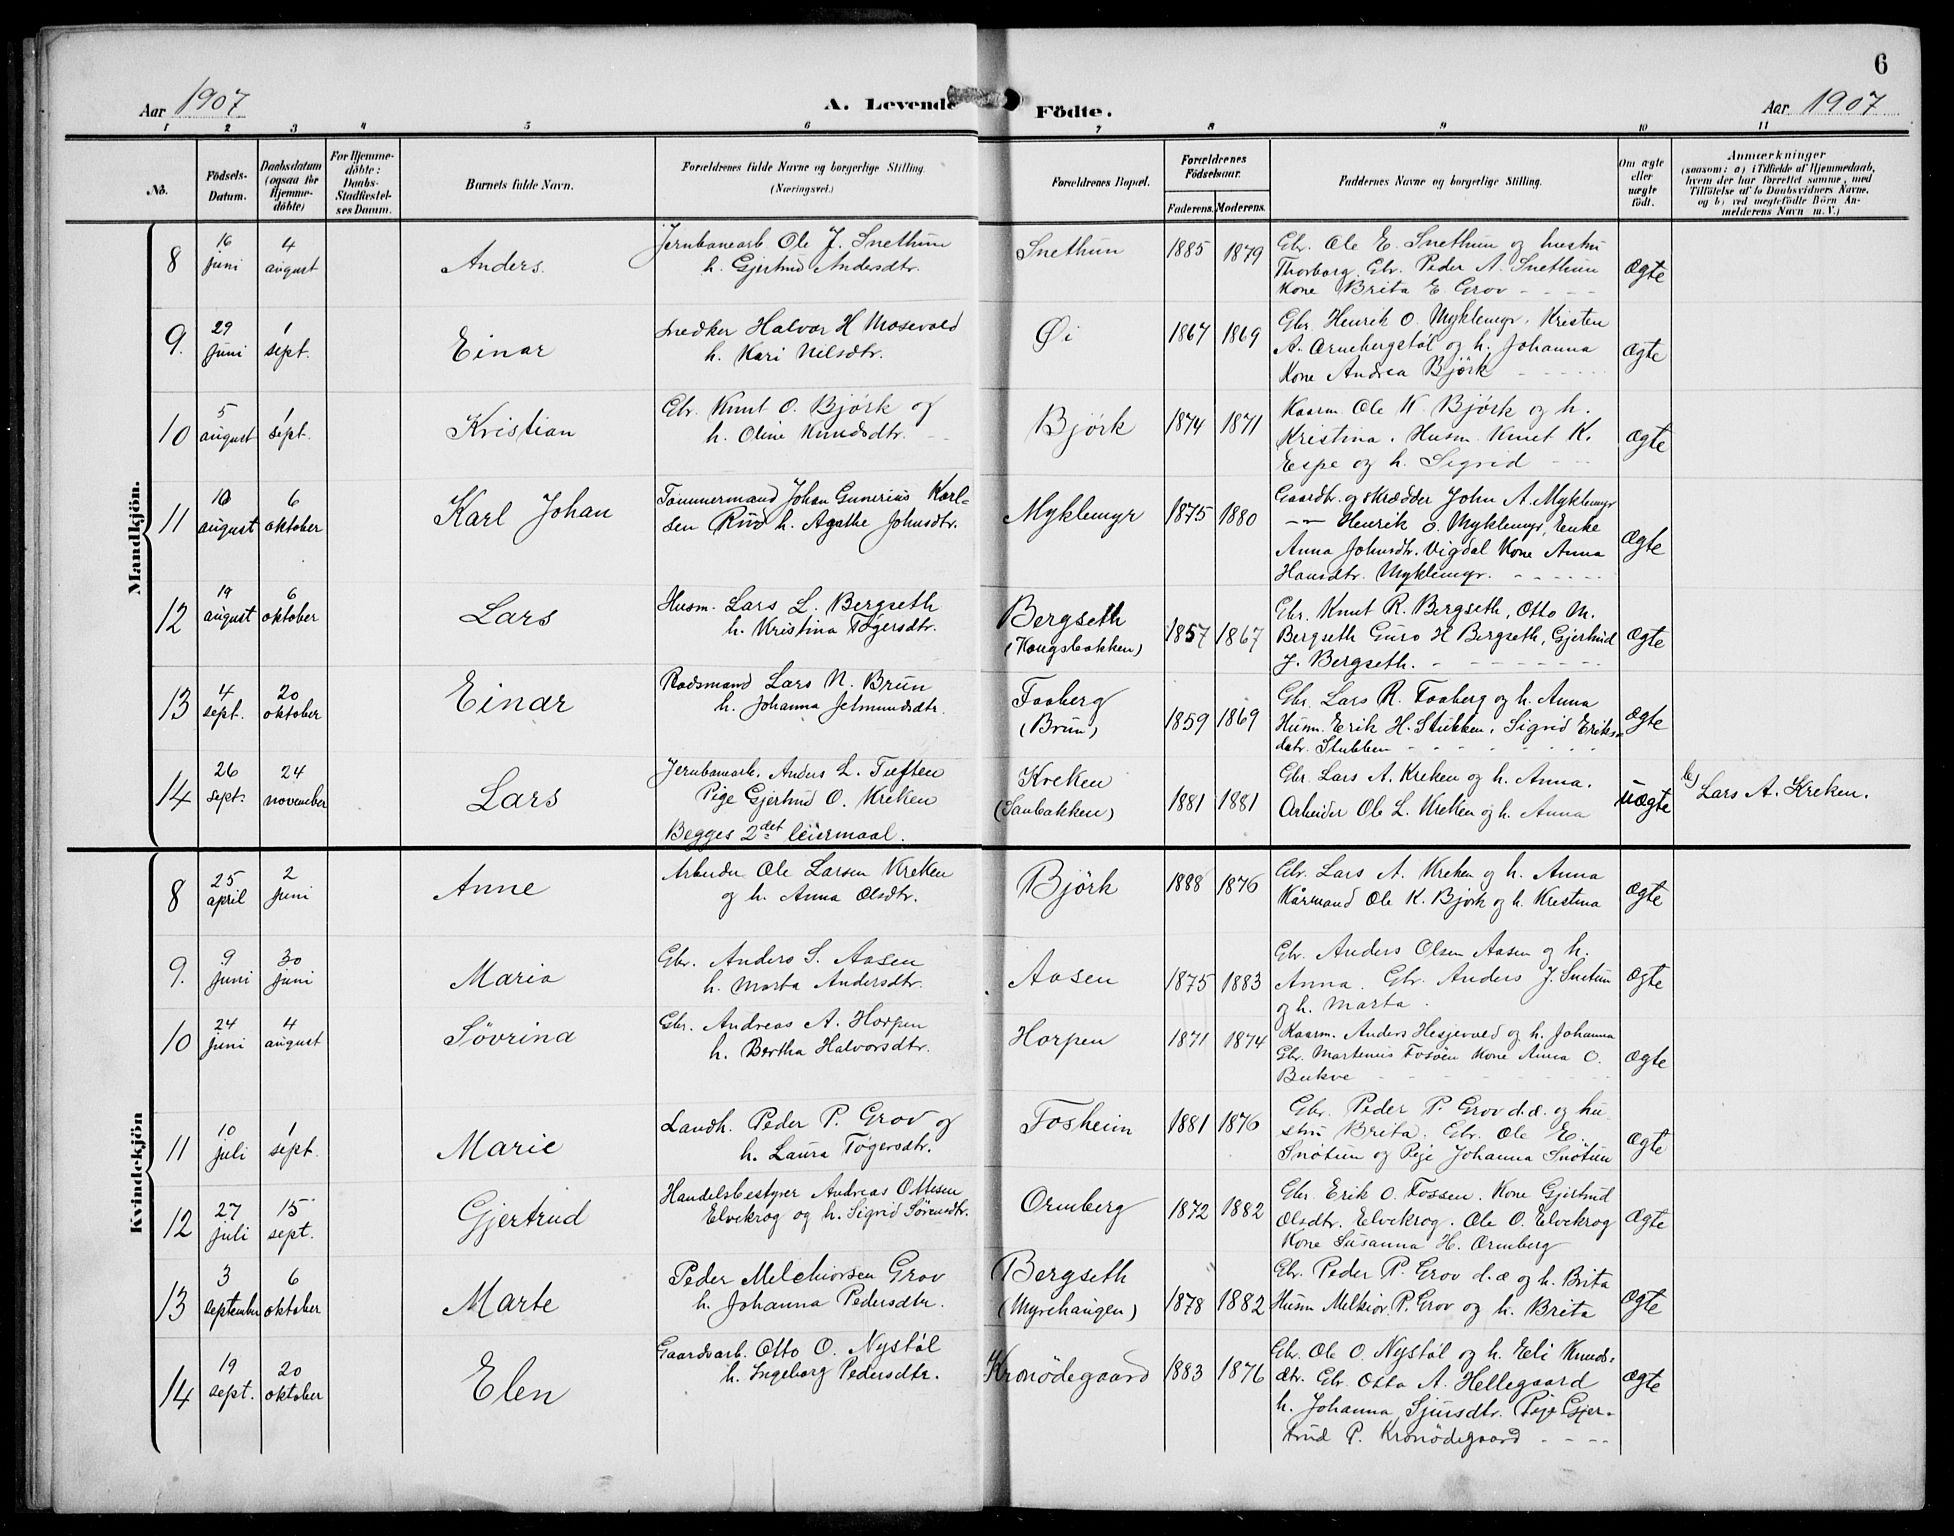 6
Aar 1907
A. Levende Födte.
Aar 1907
1 2 3 4 5 6 7 8 9 10 11
No.
Födsels-Datum.
Daabsdatum (ogsaa for Hjemme-döbte)
For Hjemme-döbte: Daabs-Stadfæstel-ses Datum.
Barnets fulde Navn.
Forældrenes fulde Navne og borgerlige Stilling. (Næringsvei.)
Forældrenes Bopæl.
Forældrenes Födselsaar.
Faderens. Moderens.
Faddernes Navne og borgerlige Stilling.
Om ægte eller uægte födt.
Anmærkninger
(saasom: a) i Tilfælde af Hjemmedaab, hvem der har forrettet samme, med Tilföielse af to Daabsvidners Navne, og b) ved uægtefödte Börn Anmelderens Navn m. V.)
Mandkjön.
8 16 juni 4 august Anders.
Jernbanearb. Ole J. Snethun
h. Gjertrud Andersdtr.
Snethun 1885 1879
Gbr. Ole E. Snethun og hustru
Thorborg. Gbr. Peder A. Snethun
Kone Brita E. Grov
Ægte
9. 29 juni 1 sept. Einar
Snedker Halvor H Mosevold
h. Kari Nilsdtr.
Øi 1867 1869
Gbr. Henrik O. Myklemyr, Kristen
A. Ormbergstøl og h. Johanna
Kone Andrea Bjørk
Ægte
10 5 august 1 sept. Kristian
Gbr. Knut O. Bjørk og
h. Oline Knudsdtr.
Bjørk 1874 1871
Kaarm. Ole K. Bjørk og h.
Kristina. Husm. Knut K.
Espe og h. Sigrid
Ægte
11 10 august 6 oktober Karl Johan
Tømmermand Johan Gunerius Karl-
sen Rud h. Agathe Johnsdtr.
Myklemyr 1875 1880
Gaardbr. og skrædder John A. Myklemyr
—"— Henrik O. Myklemyr, Enke
Anna Johnsdtr. Vigdal Kone Anna
Hansdtr. Myklemyr.
Ægte
12 19 august 6 oktober Lars
Husm. Lars L. Bergseth
h. Kristina Tøgersdtr.
Bergseth (Kongsbakken) 1857 1867
Gbr. Knut R. Bergseth, Otto M.
Bergseth Guro H Bergseth, Gjertrud
J. Bergseth.
Ægte
13 4 sept. 20 oktober Einar
Pladsmand Lars N. Brun
h. Johanna Jetmundsdtr.
Faaberg (Brun) 1859 1869
Gbr. Lars R. Faaberg og h. Anna
Husm. Erik H. Stubben, Sigrid Eriks-
datr. Stubben
Ægte
14 26 sept. 24 november Lars
Jernbanearb. Anders L. Tuften
Pige Gjertrud O. Kreken
Begges 2det leiermaal.
Kreken 1881 1881
Gbr. Lars A. Kreken og h. Anna.
Arbeider Ole L. Kreken og h. Anna
uægte
b) Lars A. Kreken.
Kvindekjön
8 25 april 2 juni Anne
Arbeider Ole Larsen Kreken
og h. Anna Olsdtr.
Bjørk 1888 1876
Gbr. Lars A. Kreken og h. Anna
Kårmand Ole K. Bjørk og h. Kristina
Ægte
9. 9 juni 30 juni Maria
Gbr. Anders S. Aasen
h. Marta Andersdtr.
Aasen 1875 1883
Gbr. Anders Olsen Aasen og h.
Anna. Gbr. Anders J. Snetun
og h. Marta.
Ægte
10 24 juni 4 august Søvrina
Gbr. Andreas A. Horpen
h. Bertha Halvorsdtr.
Horpen 1871 1874
Kaarm. Anders Hesjevold og h. Johanna
Gbr. Martenus Fosøen Kone Anna O.
Bukve
Ægte
11 10 juli 1 sept. Marie
Landh. Peder P. Grov og
h. Laura Tøgersdtr.
Fosheim 1881 1876
Gbr. Peder P. Grov d.æ. og hu-
stru Brita. Gbr. Ole E.
Snøtun og Pige Johanna Snøtun
Ægte
12 27 juli 15 sept. Gjertrud
Handelsbestyrer Andreas Ottesen
Elvekrog og h. Sigrid Sørensdtr.
Ormberg 1872 1882
Gbr. Erik O. Fossen. Kone Gjertrud
Olsdtr. Elvekrog. Ole O. Elvekrog
Kone Susanna H. Ormberg
Ægte
13 3 september 6 oktober Marte
Peder Melchiorsen Grov
h. Johanna Pedersdtr.
Bergseth (Myrehaugen) 1878 1882
Gbr. Peder P. Grov d.æ og h. Brita
Husm Melkior P. Grov og h. Brita
Ægte
14 19 sept. 20 oktober Elen
Gaardsarb. Otto O. Nystøl
h. Ingeborg Pedersdtr.
Kronødegaard 1883 1876
Gbr. Ole O. Nystøl og h. Eli Knuds-
dtr. Gbr. Otto A. Hellegaard
h. Johanna Sjursdtr. Pige Gjer-
trud P. Kronødegaard
Ægte